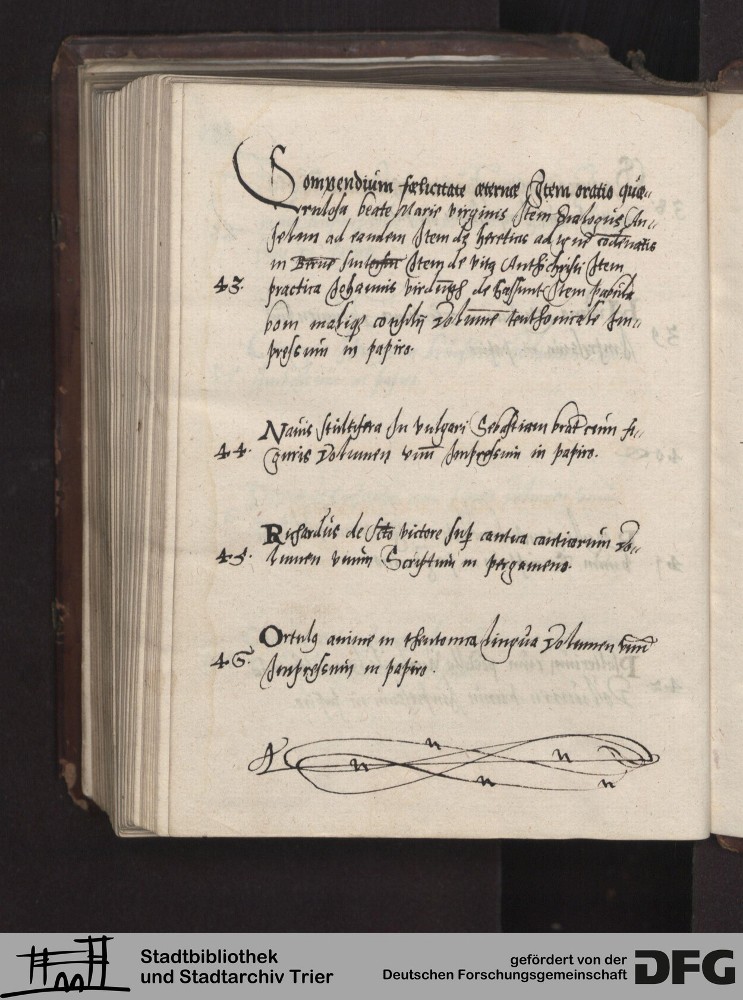 Compendium fœlicitate æternæ Item oratio quæ=
rulosa beate Marie virginis Item Dialogus An=
selmi ad eandem Item de heretias ad
in Item de vita Anthichristi Item
43. practica Johannis de hassurt Item
boni maliqȝ consilij Volumē teuthonicale Im=
pressum in papiro.
Nauis stultifera In vulgari Sebastiani brāt cum fi=
44. guris Volumen vnū Impressum in papiro.
Richardus de Scto victore sup cantica canticorum Vo=
45. lumen vnum Scriptum in pergameno.
Ortulꝰ anime in theutonica lingua Volumen vnū
46. Impressum in papiro.
Stadtbibliothek
und Stadtarchiv Trier
gefördert von der
Deutschen Forschungsgemeinschaft
DFG